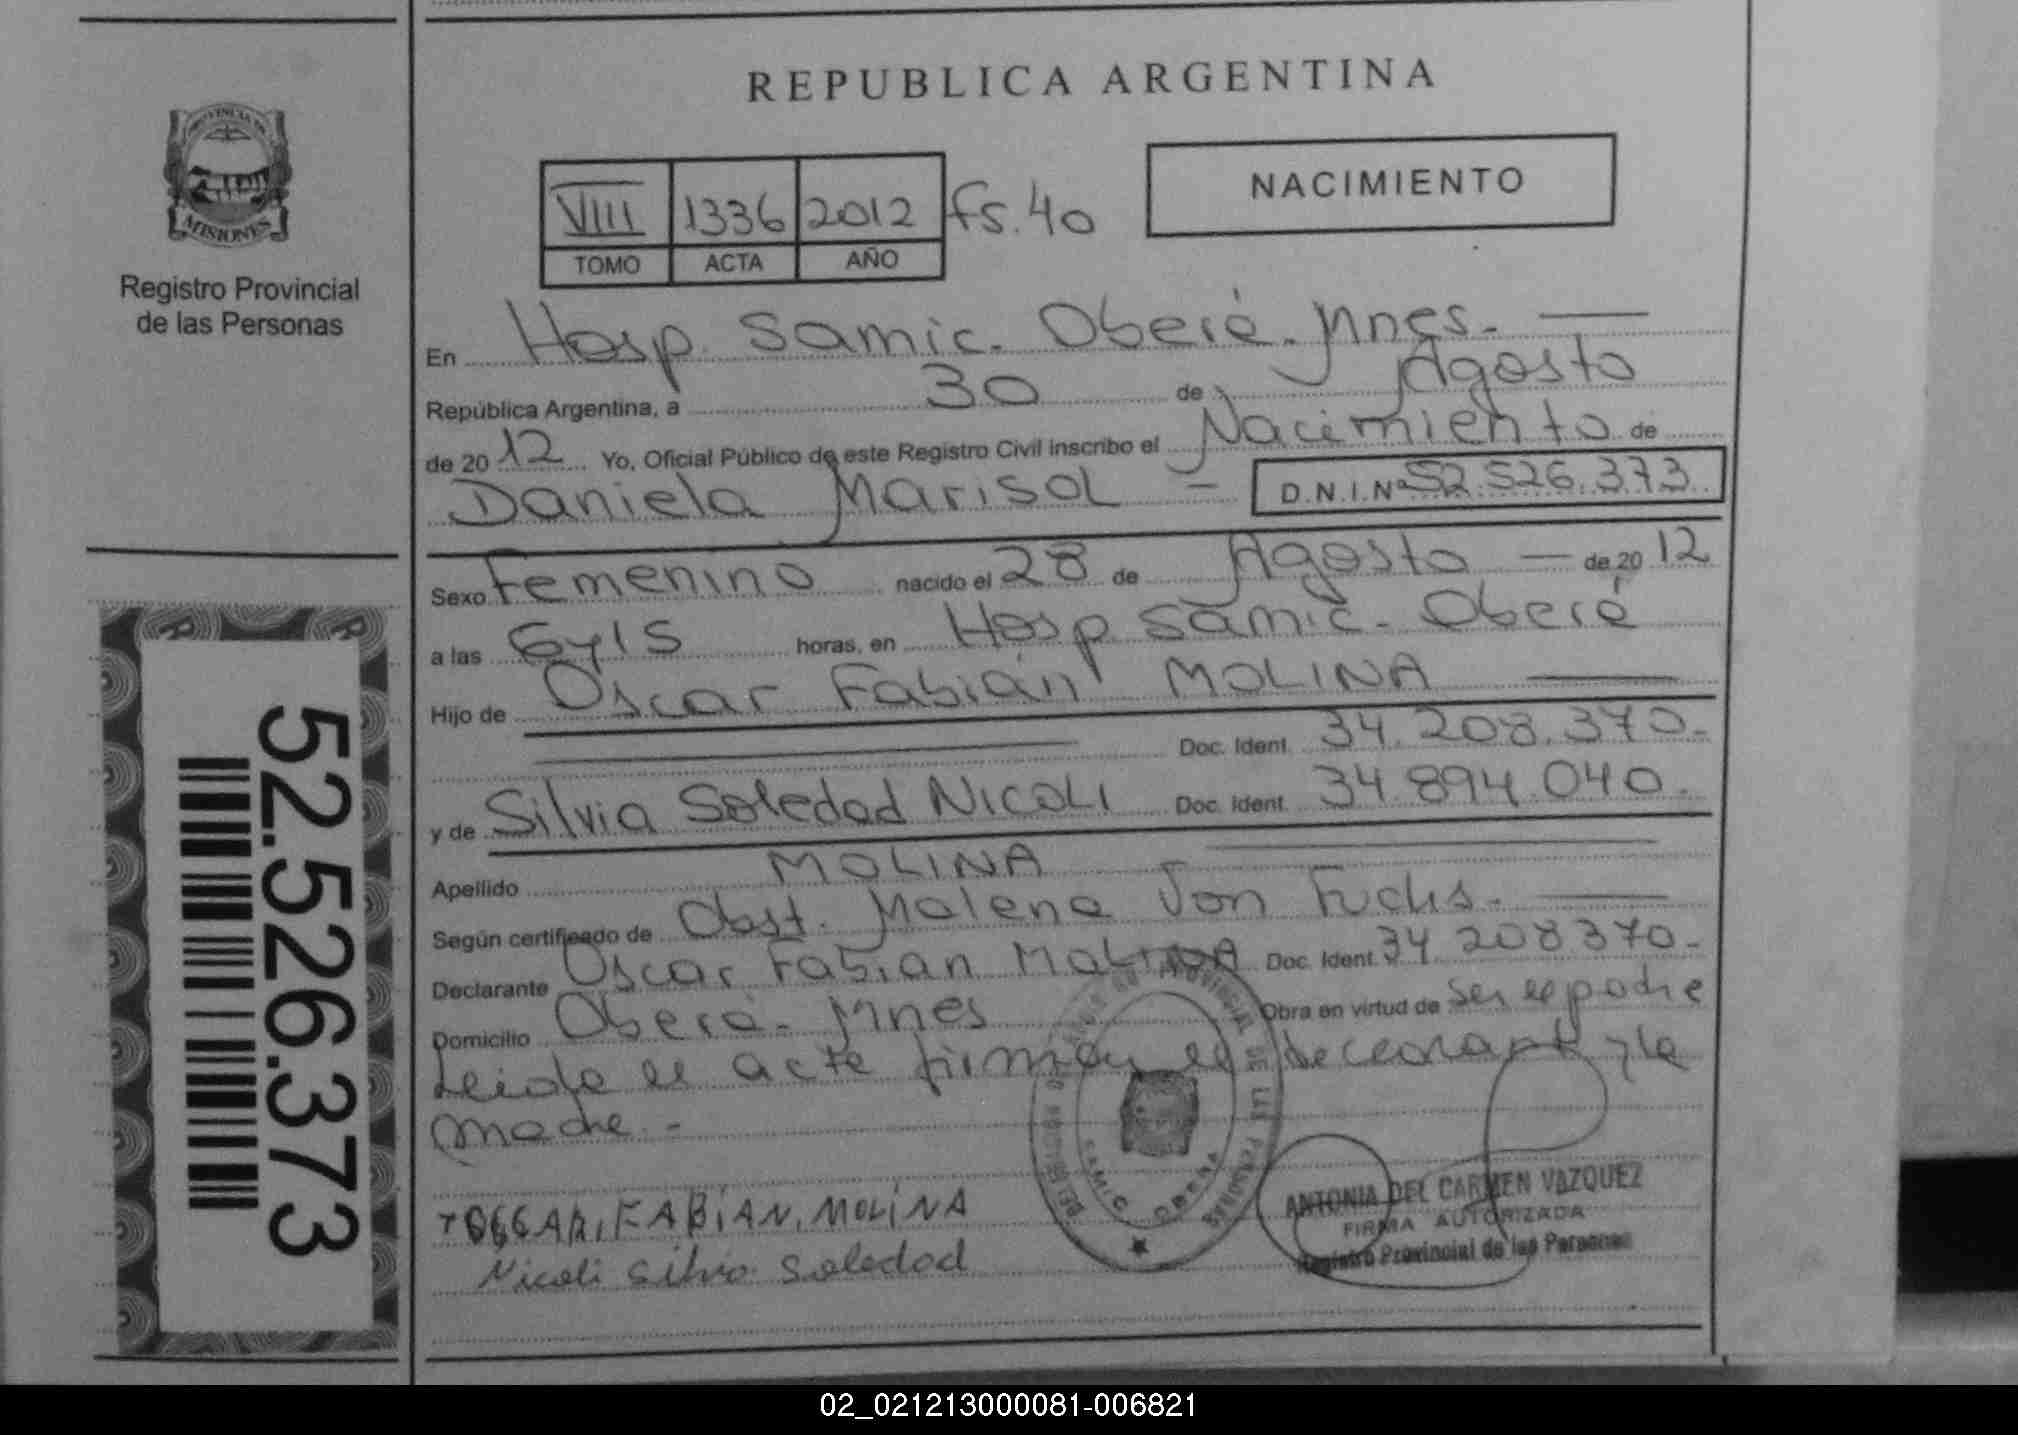 REPUBLICA ARGENTINA
NACIMIENTO
VIII 1336 2012 fs. 40
TOMO ACTA AÑO
PROVINCIA DE
MISIONES
Registro Provincial
de las Personas
En Hosp. Samic. Oberá. Mnes. —
República Argentina, a 30 de Agosto
de 2012 Yo, Oficial Público de este Registro Civil inscribo el Nacimiento de
Daniela Marisol — D.N.I.Nº 52.526.373
Sexo Femenino nacido el 28 de Agosto — de 2012
a las 6y15 horas, en Hosp Samic. Oberá
Hijo de Oscar Fabián MOLINA —
Doc. Ident. 34.208.370.-
y de Silvia Soledad NICOLI Doc. Ident. 34.894.040.-
Apellido MOLINA
Según certificado de Obst. Malena Von Fuchs. —
Declarante Oscar Fabian MOLINA Doc. Ident. 34.208370.-
Domicilio Oberá. Mnes Obra en virtud de ser el padre
Leida el acta firman el declarante y la
madre.-
OSCAR, FABIAN, MOLINA
Nicoli Silvia Soledad
PROVINCIAL DE LAS PERSONAS
SAMIC OBERA
ANTONIA DEL CARMEN VAZQUEZ
FIRMA AUTORIZADA
Registro Provincial de las Personas
52.526.373
02_021213000081-006821